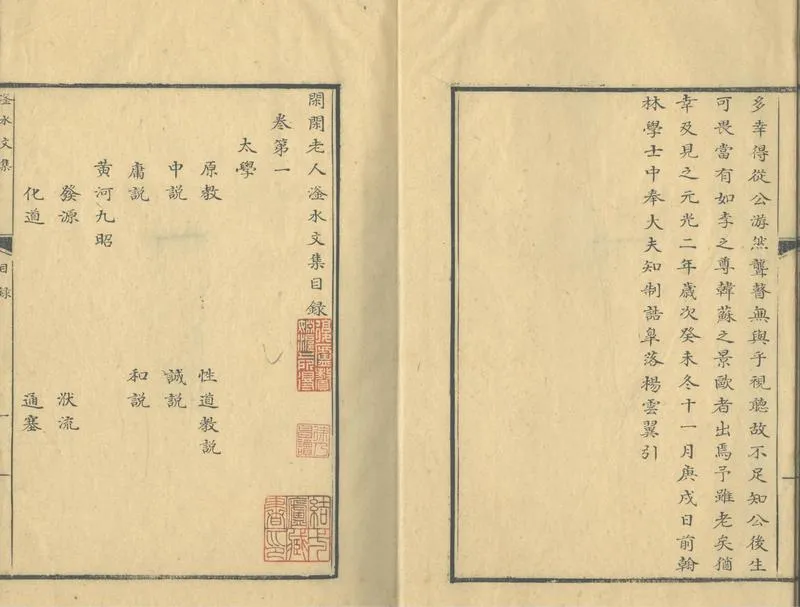 多幸得從公游然聾瞽無與乎視聽故不足知公後生
可畏當有如李之尊韓蘇之景歐者出焉予雖老矣猶
幸及見之元光二年歲次癸未冬十一月庚戌日前翰
林學士中奉大夫知制誥皐落楊雲翼引
閑閑老人滏水文集目録
卷第一
太學
原教 性道教説
中説 誠説
庸説 和説
黄河九昭
發源 洑流
化道 通塞
滏水文集 目録 一